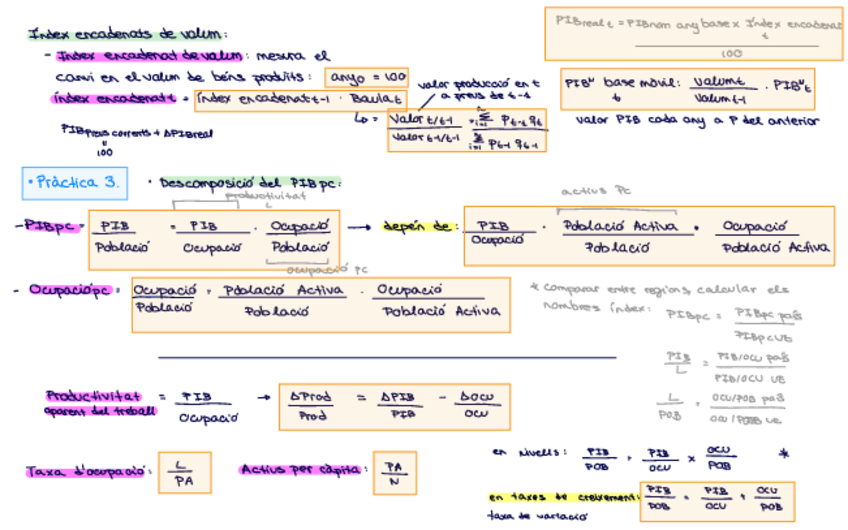 Índex encadenats de valum:
- Índex encadenat de valum: mesura el
canvi en el valum de béns produïts: any0 = 100
índex encadenat t = índex encadenat t-1 · Baula t
valor producció en t
a preus de t-1
↳ = Valor t/t-1 / Valor t-1/t-1 = Σ P t-1 q t / Σ P t-1 q t-1
PIB preus corrents + ΔPIB real
=
100
PIB real t = PIB nom any base x Índex encadenat t / 100
PIB^u t base mòbil: Valum t / Valum t-1 · PIB^u t
Valor PIB cada any a P del anterior
• Pràctica 3.
• Descomposició del PIBpc:
productivitat
L
- PIBpc = PIB / Població = PIB / Ocupació · Ocupació / Població
ocupació pc
→ depèn de: PIB / Ocupació · Població Activa / Població · Ocupació / Població Activa
actius pc
- Ocupaciópc = Ocupació / Població = Població Activa / Població · Ocupació / Població Activa
* comparar entre regions, calcular els
nombres índex: PIBpc = PIBpc país / PIBpc UE
PIB / L = PIB/OCU país / PIB/OCU UE
L / POB = OCU/POB país / OCU/POB UE
Productivitat
aparent del treball
= PIB / Ocupació → ΔProd / Prod = ΔPIB / PIB - ΔOCU / OCU
Taxa d'ocupació: L / PA
Actius per càpita: PA / N
en nivells: PIB / POB = PIB / OCU x OCU / POB *
en taxes de creixement:
taxa de variació
PIB / POB = PIB / OCU + OCU / POB